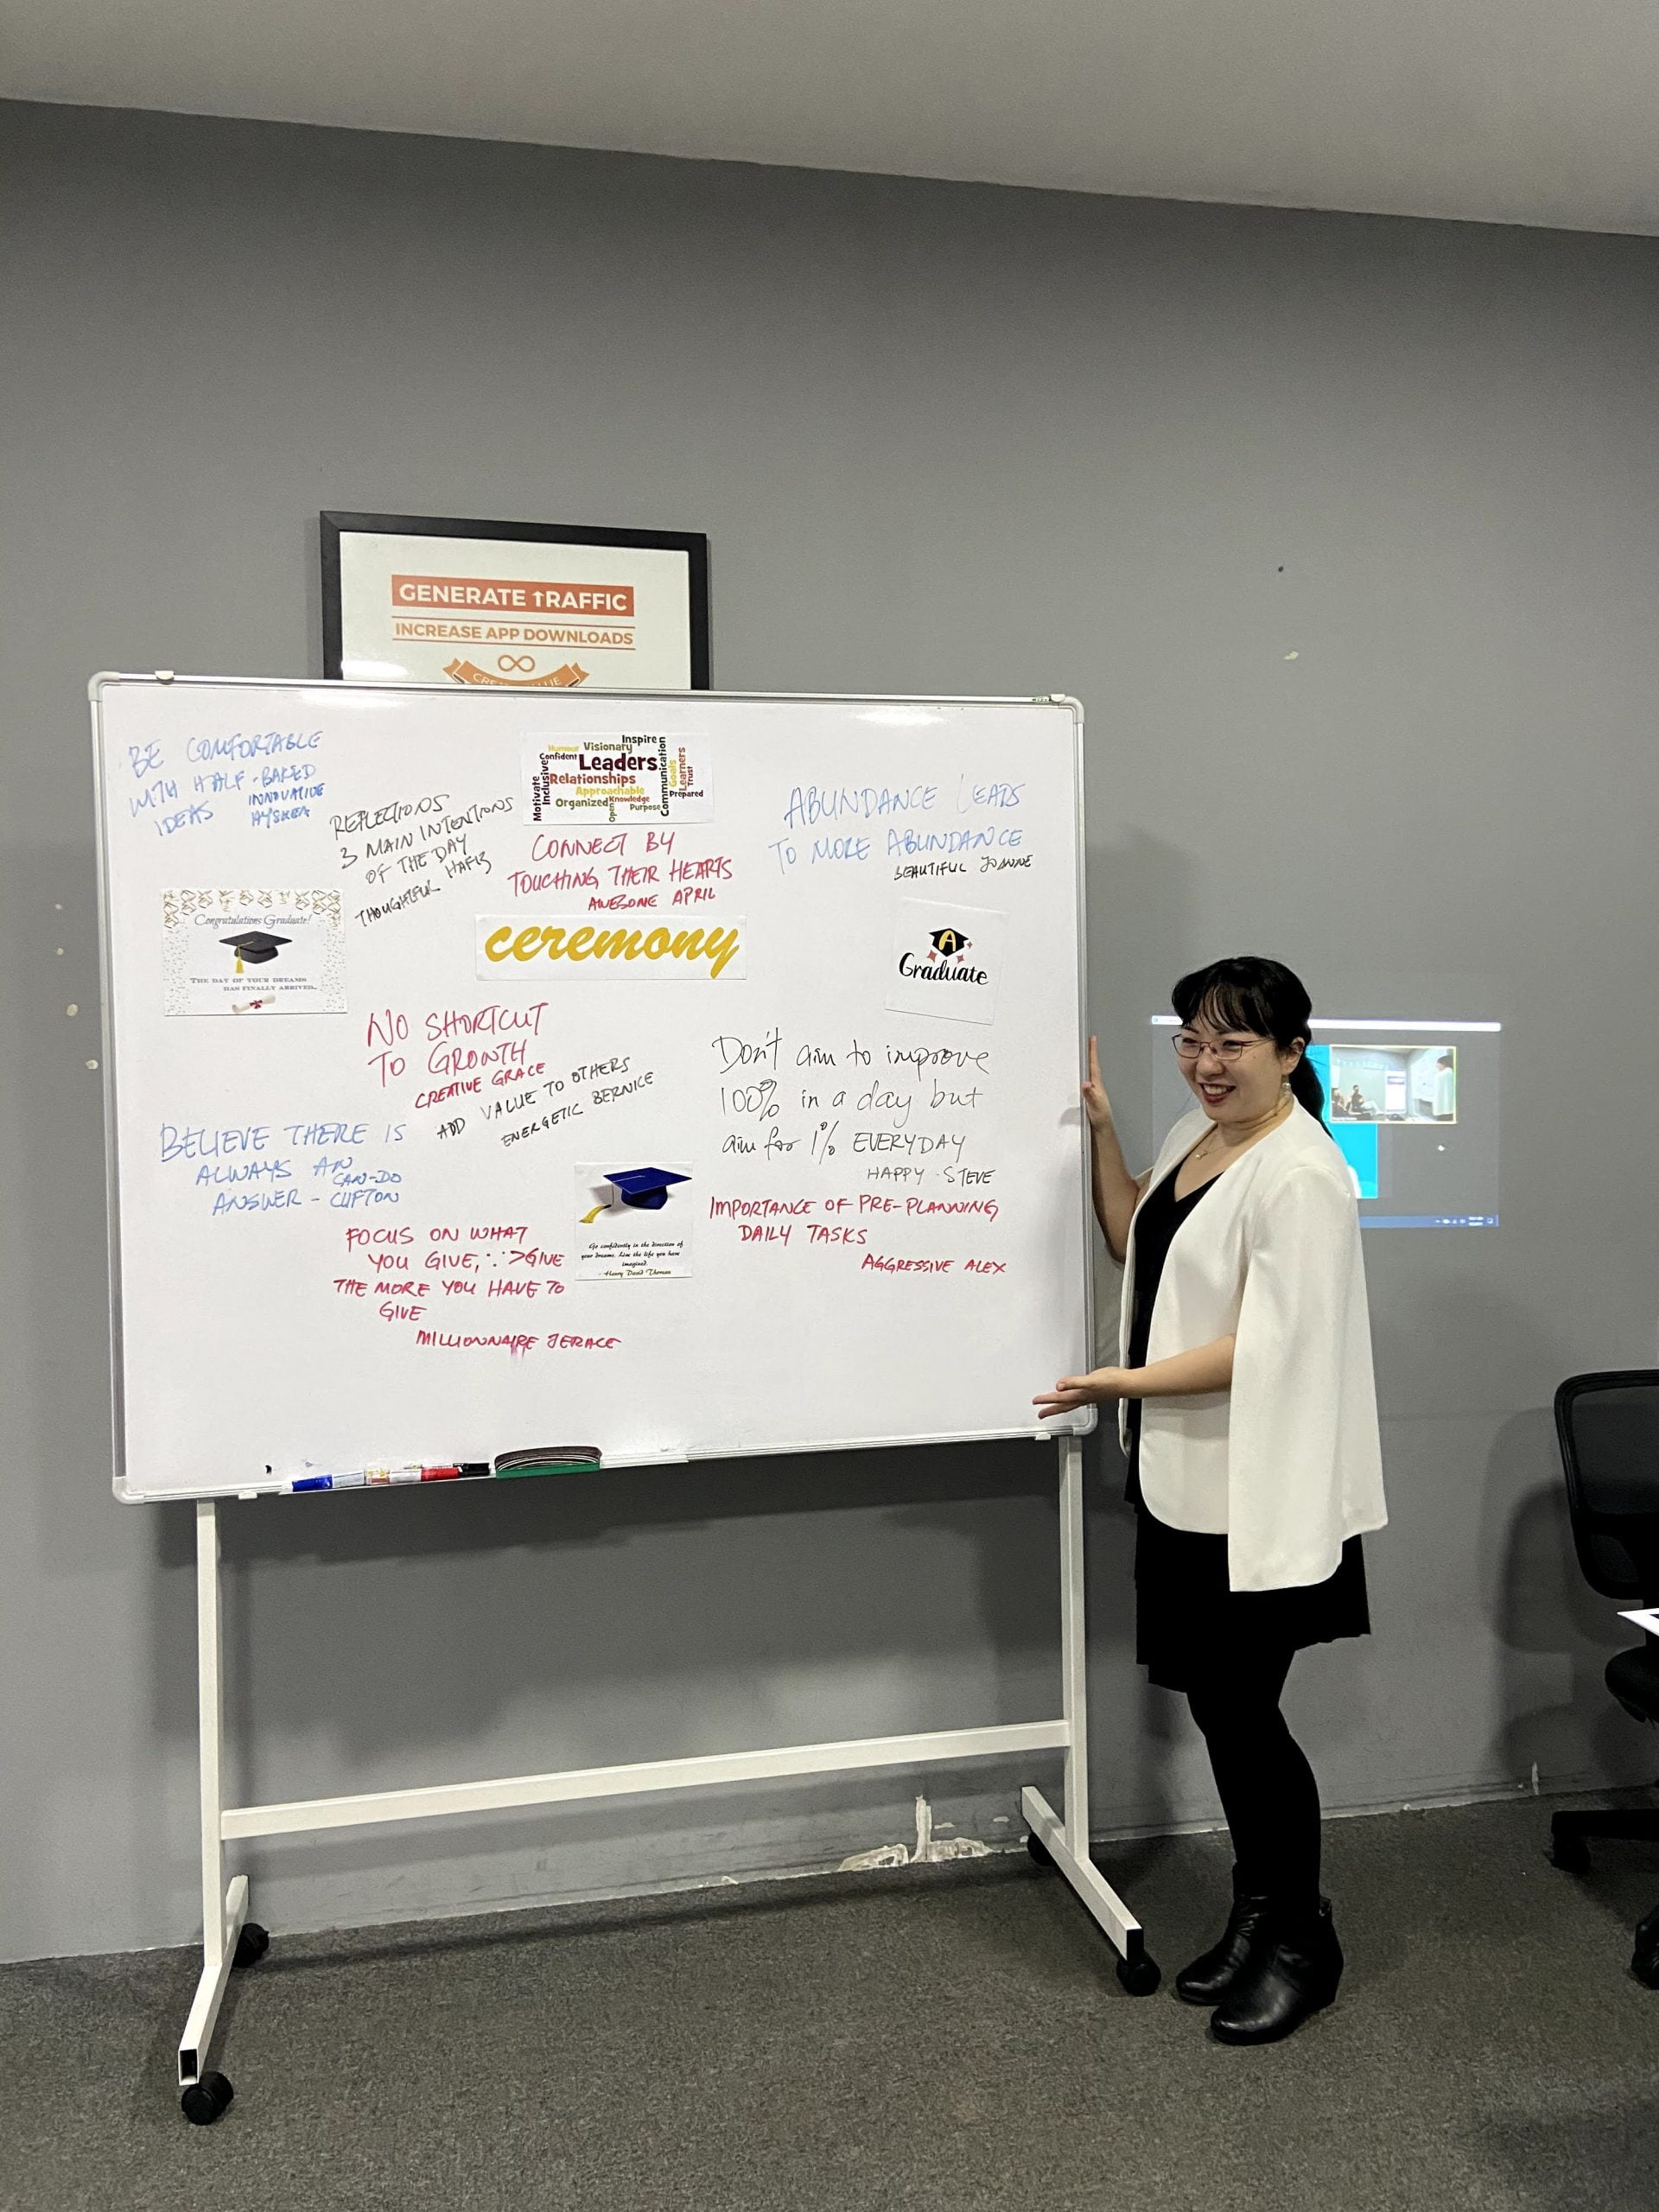 GENERATE TRAFFIC
INCREASE APP DOWNLOADS
BE COMFORTABLE
WITH HALF-BAKED
IDEAS INNOVATIVE
REFLECTIONS
3 MAIN INTENTIONS
OF THE DAY
THOUGHTFUL HAFIZ
Inspire
Humour Visionary
Confident
Leaders
Relationships
Approachable
Organized Knowledge
Open Purpose
Motivate
Inclusive
Communication
Goals
Learners
Trust
Prepared
CONNECT BY
TOUCHING THEIR HEARTS
AWESOME APRIL
ABUNDANCE LEADS
TO MORE ABUNDANCE
BEAUTIFUL JOANNE
Congratulations Graduate!
THE DAY OF YOUR DREAMS
HAS FINALLY ARRIVED.
ceremony
A
Graduate
NO SHORTCUT
TO GROWTH
CREATIVE GRACE
ADD VALUE TO OTHERS
ENERGETIC BERNICE
Don't aim to improve
100% in a day but
aim for 1% EVERYDAY
HAPPY STEVE
BELIEVE THERE IS
ALWAYS AN
CAN-DO
ANSWER - CLIFTON
IMPORTANCE OF PRE-PLANNING
DAILY TASKS
AGGRESSIVE ALEX
FOCUS ON WHAT
YOU GIVE, ∵ >GIVE
THE MORE YOU HAVE TO
GIVE
MILLIONNAIRE JERACE
Go confidently in the direction of
your dreams. Live the life you have
imagined.
- Henry David Thoreau